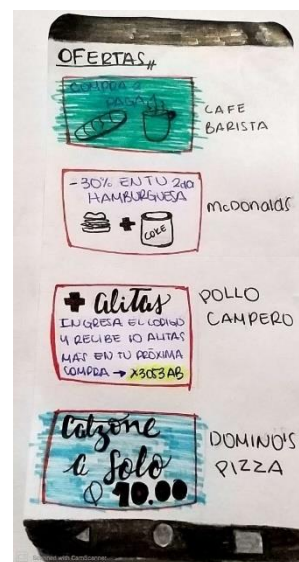 OFERTAS
COMPRA 2
PAGA
CAFE
BARISTA
-30% EN TU 2da
HAMBURGUESA
COKE
McDonalds
+ alitas
INGRESA EL CODIGO
Y RECIBE 10 ALITAS
MÁS EN TU PRÓXIMA
COMPRA → X3053AB
POLLO
CAMPERO
Calzone
a Solo
Q 10.00
DOMINO'S
PIZZA
Scanned with CamScanner